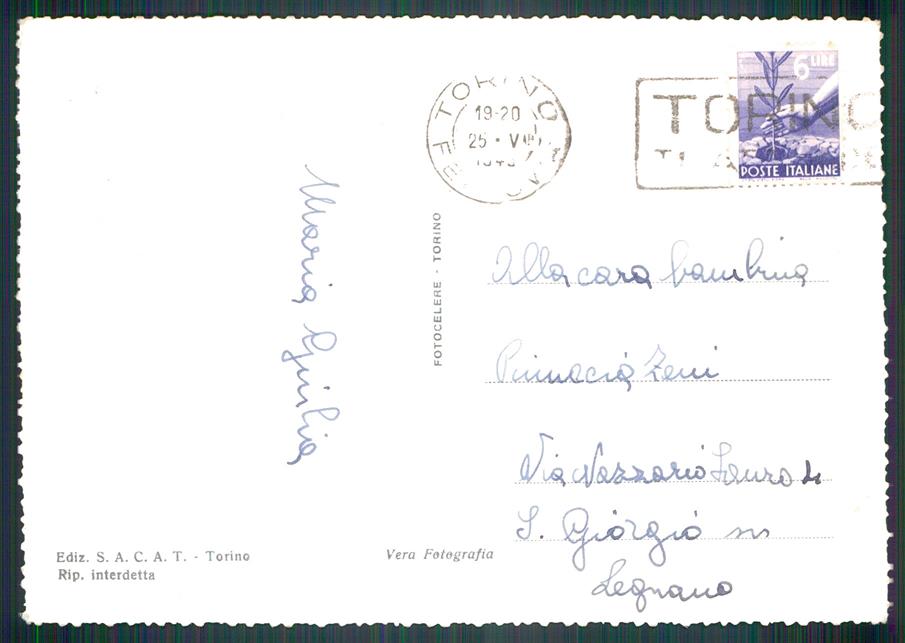 Maria Giulia
Ediz. S. A. C. A. T. - Torino
Rip. interdetta
Vera Fotografia
FOTOCELERE - TORINO
TORINO
19-20
25 · VII
FERROVIA
TORINO
6 LIRE
POSTE ITALIANE
Alla cara bambina
Zeni
Via Nazzario Sauro 4
S. Giorgio su
Legnano